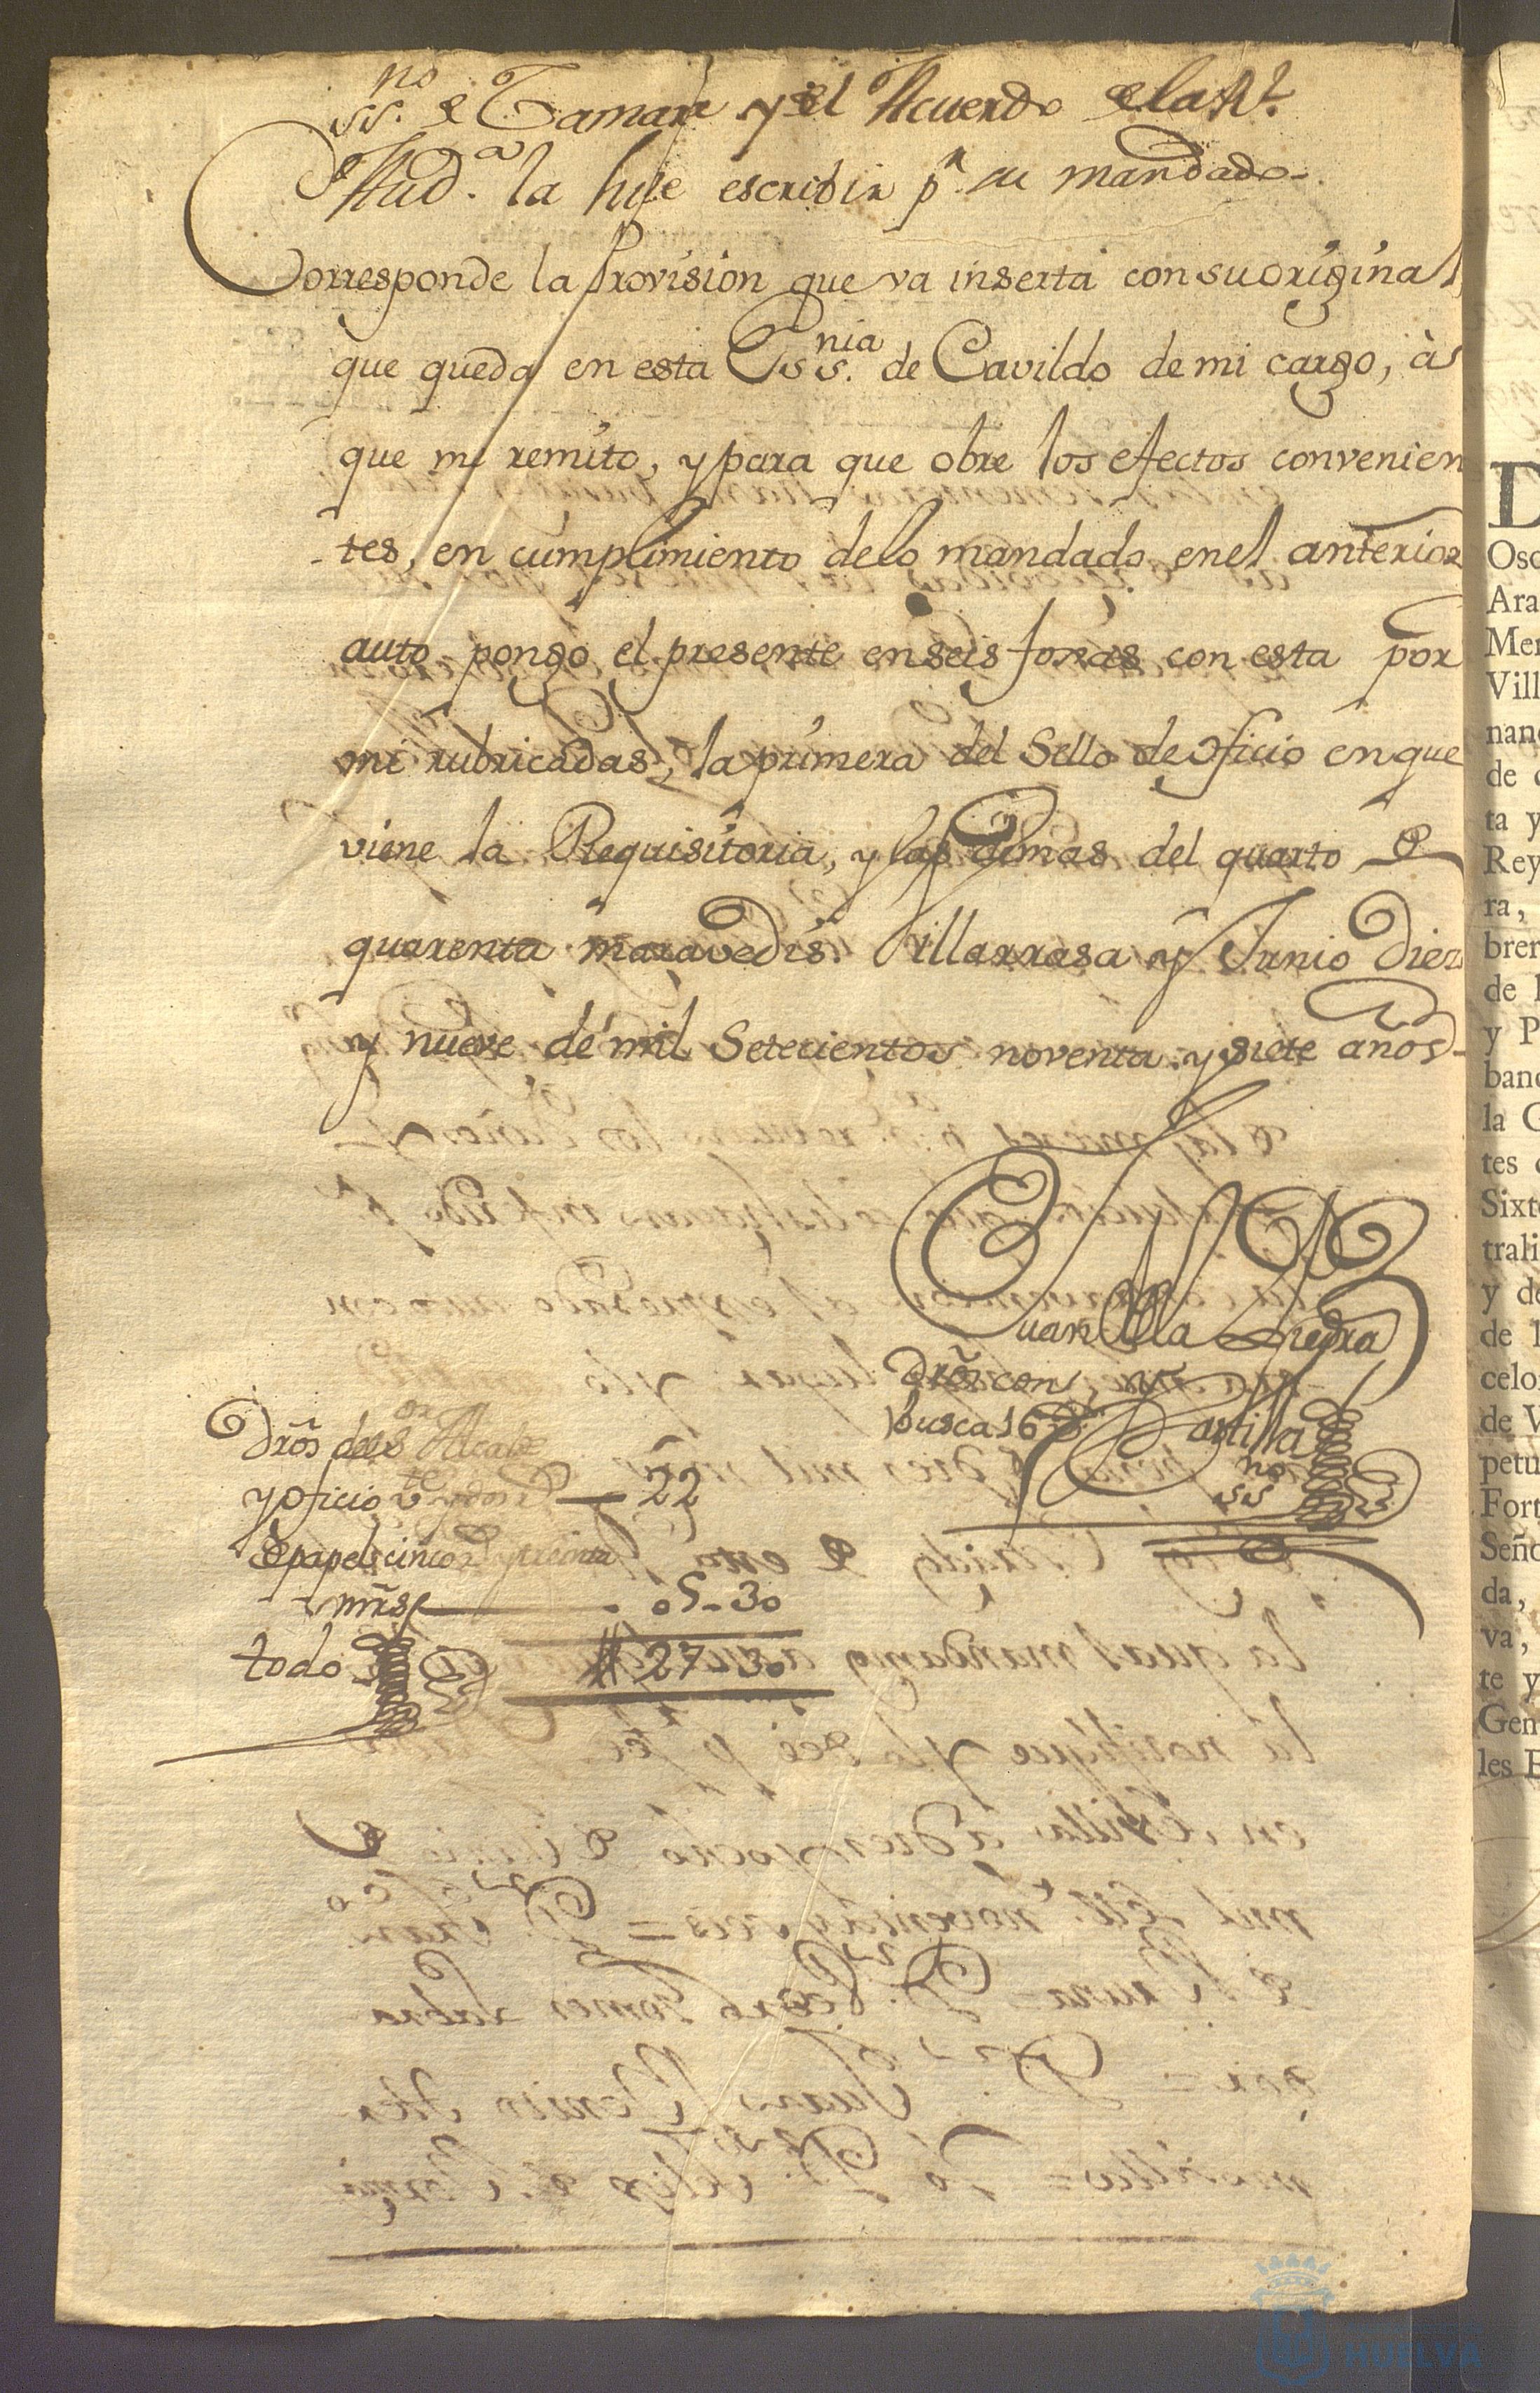 ss.no de Camara y del Acuerdo de la Rl.
Auda. la hice escribir pr. su mandado
Corresponde la Provision que va inserta con su original,
que queda en esta Essnia. de Cavildo de mi cargo, à
que me remito, y para que obre los efectos convenien
tes, en cumplimiento delo mandado enel anterior
auto pongo el presente en seis foxas con esta por
mi rubricadas, la primera del Sello de oficio en que
viene la Requisitoria, y las demas del quarto de
quarenta maravedis. Villarrasa y Junio diez
y nueve de mil Setecientos noventa y siete años
Juan
Piedra
Drõs con
busca 16
ssno
Drõs del Sor Alcalde
y oficio te y dos 22
de papel cinco y treinta
mrs 05-30
todo 27-30
D
Oso
Ara
Mer
Vill
nan
de
ta y
Rey
ra,
brer
de l
y P
banc
la C
tes
Sixt
trali
y de
de l
celo
de V
petu
Fort
Seño
da,
va,
te y
Gen
les E
HUELVA